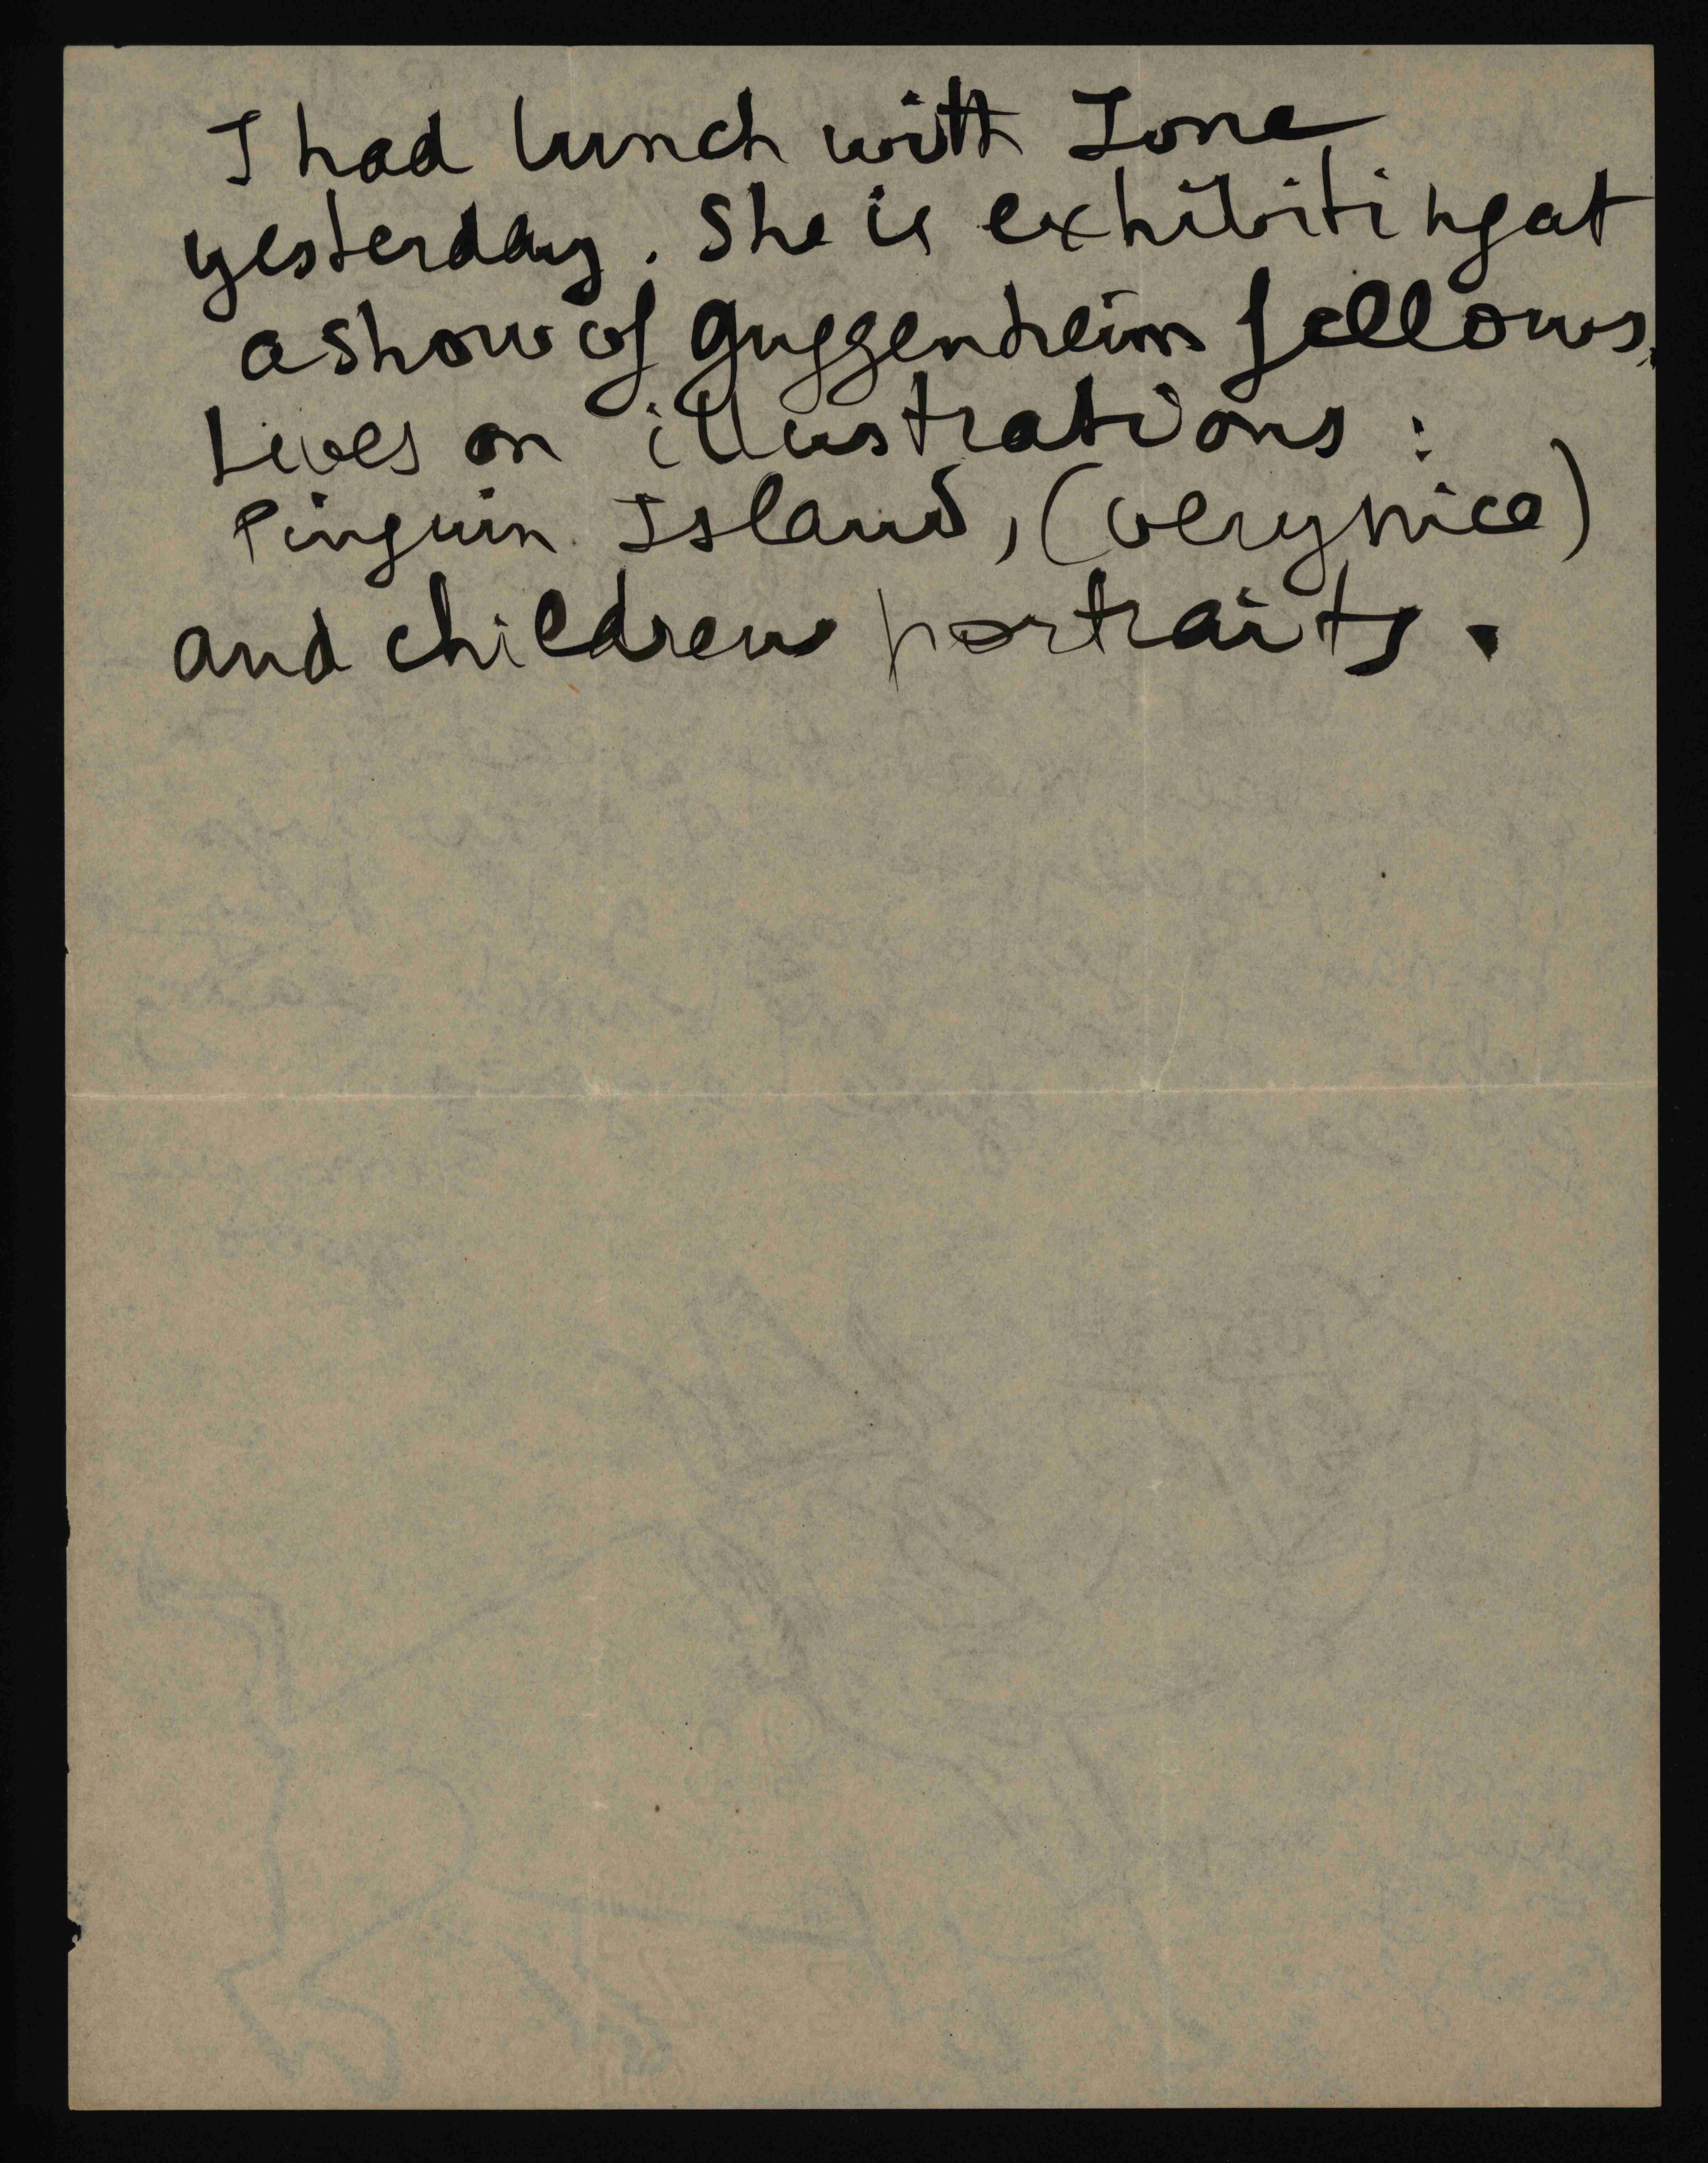 I had lunch with Ione
yesterday. She is exhibiting at
a show of guggenheim fellows.
Lives on illustrations :
Pinguin Island, (very nice)
and children portraits.